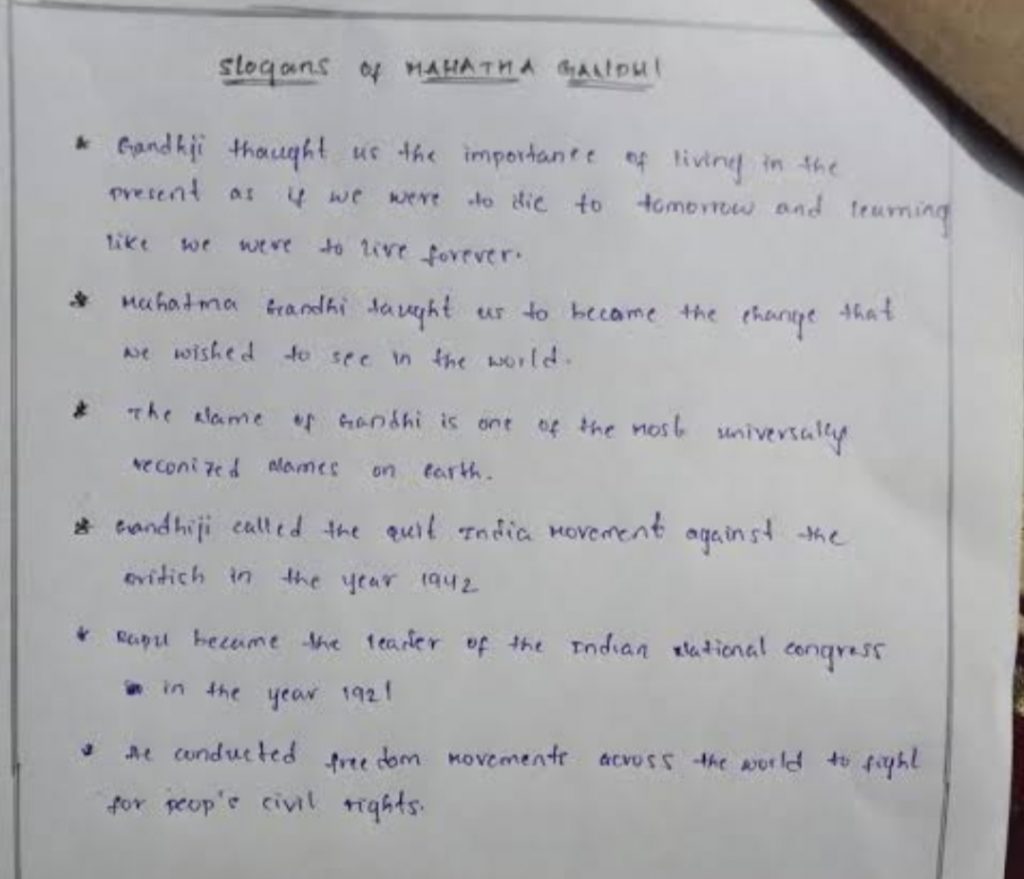 Slogans of MAHATMA GANDHI
* Gandhji thaught us the importance of living in the
present as if we were to die to tomorrow and learning
like we were to live forever.
* Mahatma Gandhi taught us to became the change that
we wished to see in the world.
* The Name of Gandhi is one of the most universally
reconized Names on earth.
* Gandhiji called the quit India Movement against the
Britich in the year 1942
* Bapu became the leader of the Indian National congress
in the year 1921
* He conducted freedom movements across the world to fight
for peop's civil rights.